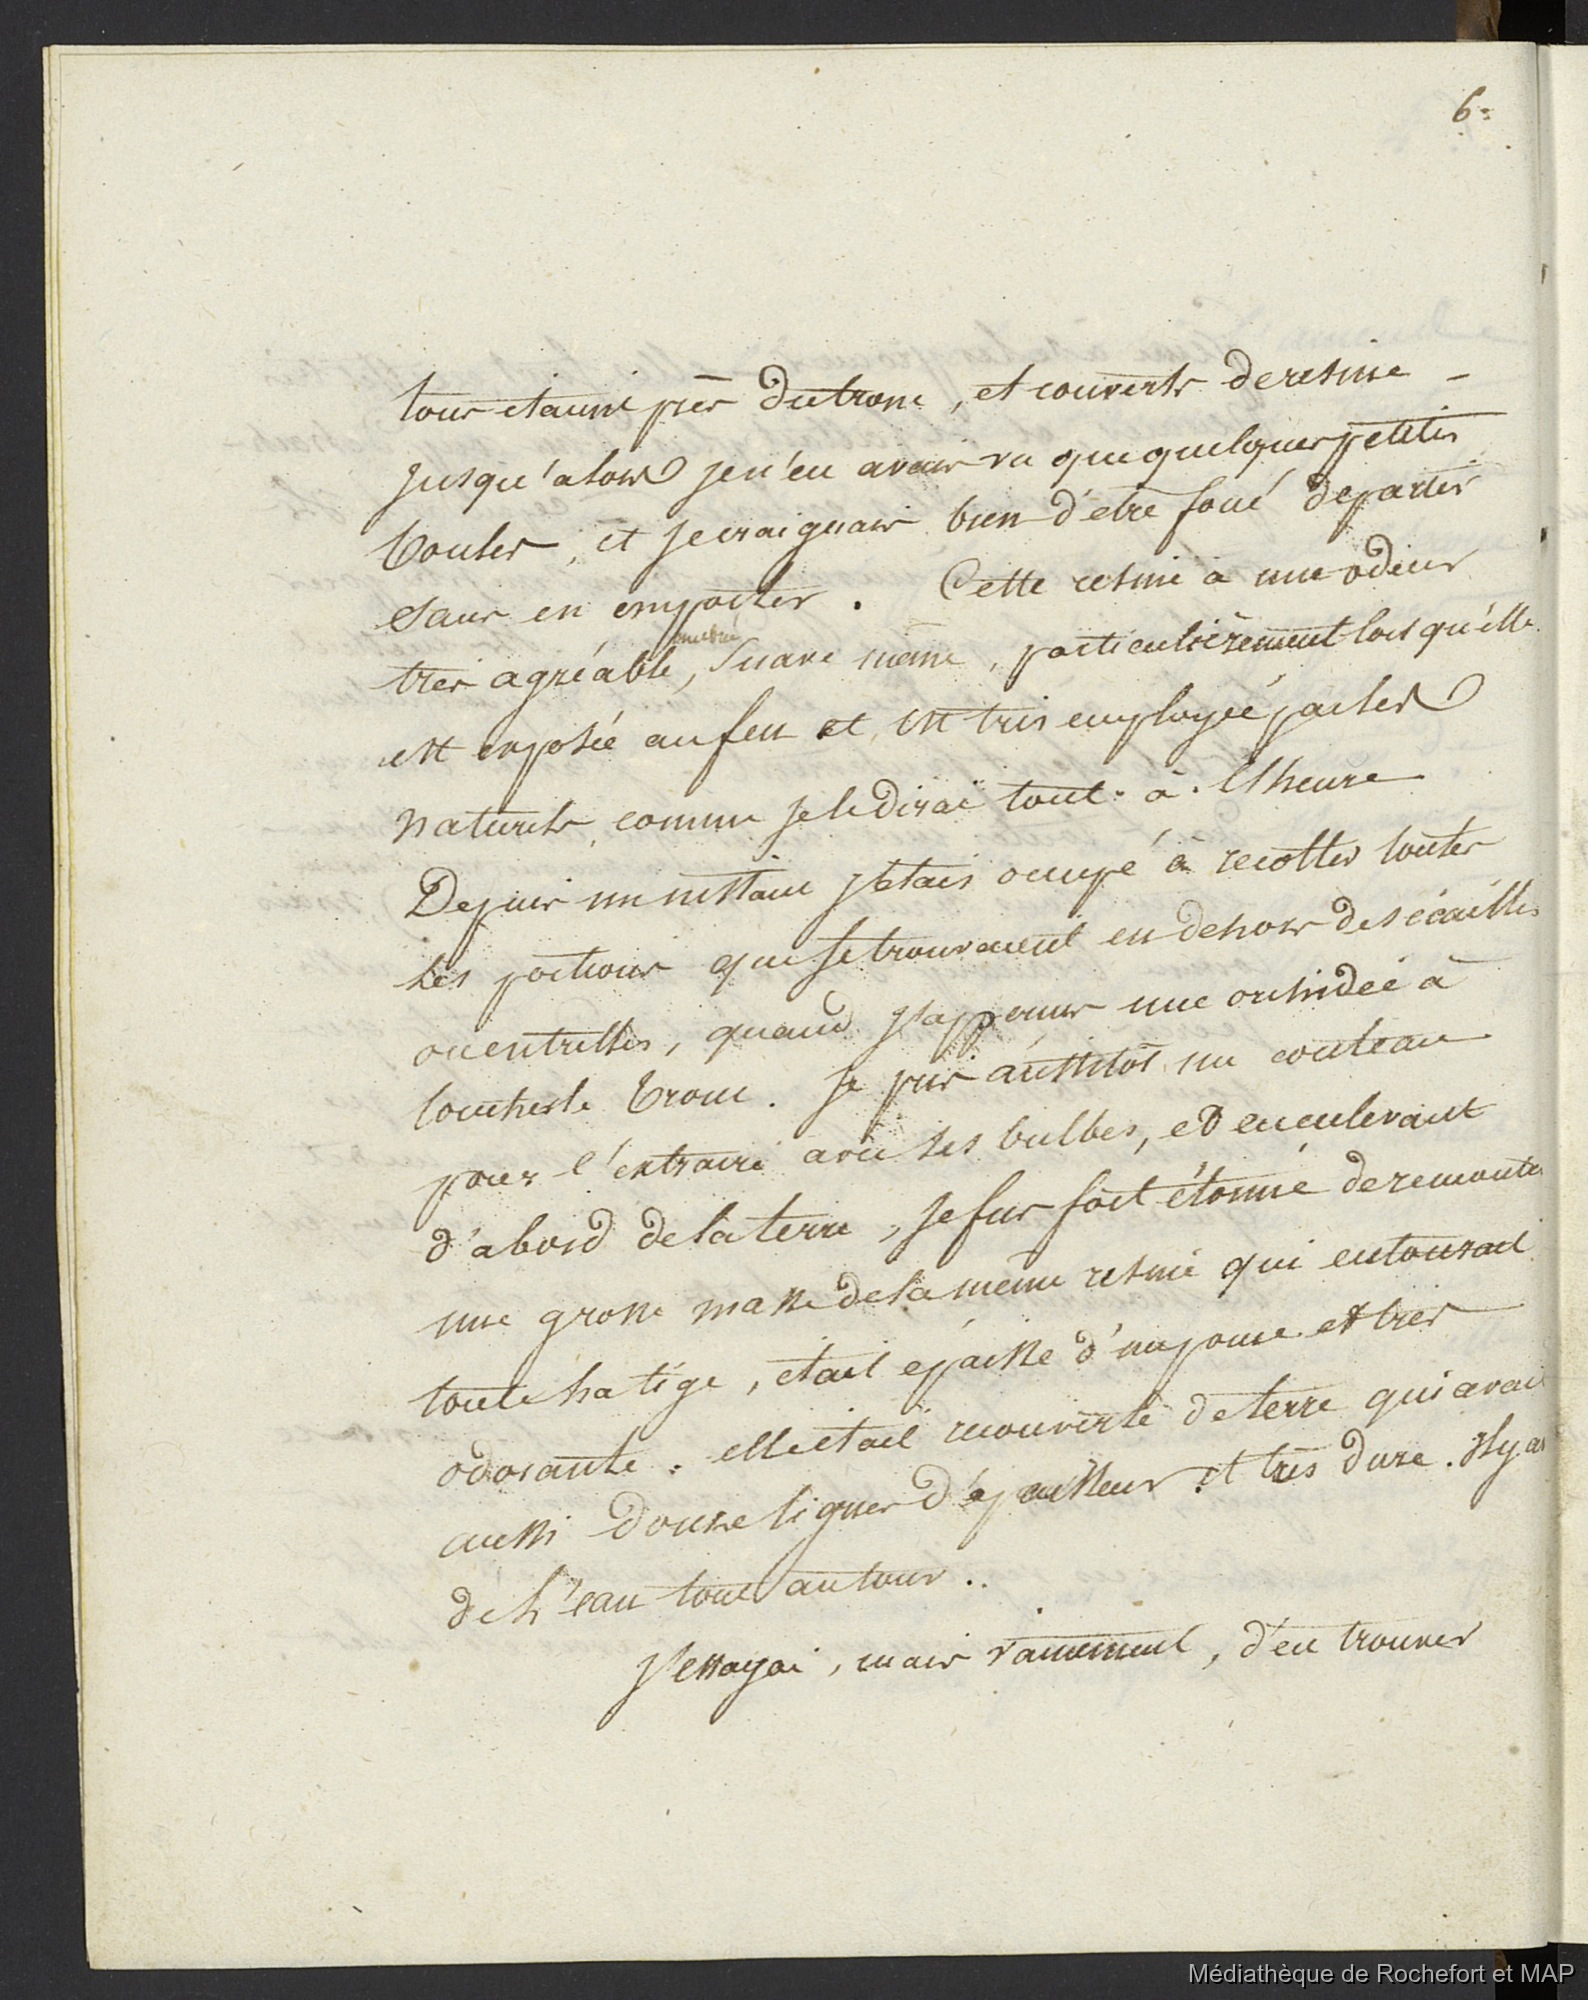 6=
tous etaint près du tronc, et couverts de resine -
Jusqu'alors Je n'en avais vu que quelques petites
boules, et Je craignais bien d'etre forcé de partir
Sans en emporter. Cette resine a une odeur
très agréable, Suave même, particulièrement lorsqu'elle
est exposée au feu et est très employée par les
naturels, comme Je le dirai tout-à-l'heure
Depuis un instant J'étais occupé à recolter toutes
les portions que se trouvaient en dehors des écailles
ou entr'elles, quand J'apperçus une orchidée à
toucher le tronc. Je pris aussitôt un couteau
pour l'extraire avec ses bulbes, et en enlevant
d'abord de la terre, Je fus fort étonné de remonter
une grosse masse de la même resine qui entourait
toute la tige, était epaisse d'un pouce et très
odorante. elle était recouverte de terre qui avait
aussi douze lignes d'epaisseur et très dure. Il y a
de l'eau tout autour..
J'essayai, mais vainement, d'en trouver
Médiathèque de Rochefort et MAP